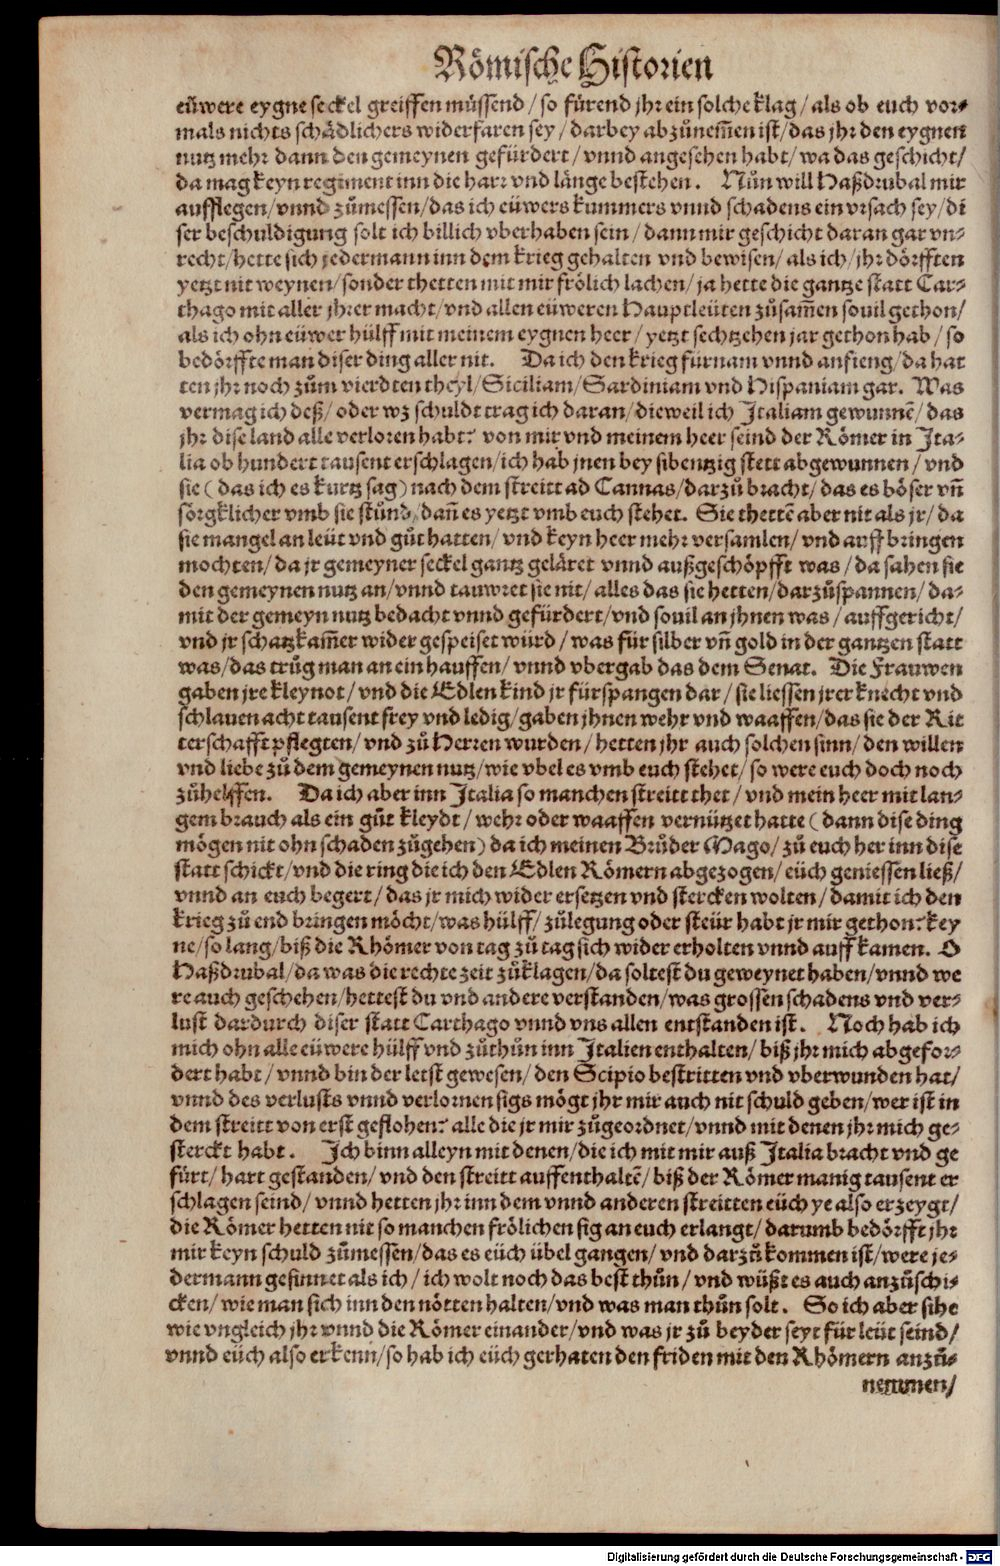 Römische Historien
eüwere eygne seckel greiffen müssend / so fürend jhr ein solche klag / als ob euch vor⸗
mals nichts schädlichers widerfaren sey / darbey abzůnem̃en ist / das jhr den eygnen
nutz mehr dann den gemeynen gefürdert / vnnd angesehen habt / wa das geschicht /
da mag keyn regiment inn die harr vnd länge bestehen. Nůn will Haßdrubal mir
aufflegen / vnnd zůmessen / das ich eüwers kummers vnnd schadens ein vrsach sey / di
ser beschuldigung solt ich billich vberhaben sein / dann mir geschicht daran gar vn⸗
recht / hette sich jedermann inn dem krieg gehalten vnd bewisen / als ich / jhr dörfften
yetzt nit weynen / sonder thetten mit mir frölich lachen / ja hette die gantze statt Car⸗
thago mit aller jhrer macht / vnd allen eüweren Hauptleüten zůsam̃en souil gethon /
als ich ohn eüwer hülff mit meinem eygnen heer / yetzt sechtzehen jar gethon hab / so
bedörffte man diser ding aller nit. Da ich den krieg fürnam vnnd anfieng / da hat
ten jhr noch zům vierdten theyl / Siciliam / Sardiniam vnd Hispaniam gar. Was
vermag ich deß / oder wz schuldt trag ich daran / dieweil ich Italiam gewunnẽ / das
jhr dise land alle verloren habt? von mir vnd meinem heer seind der Römer in Ita⸗
lia ob hundert tausent erschlagen / ich hab jnen bey sibentzig stett abgewunnen / vnd
sie ( das ich es kurtz sag ) nach dem streitt ad Cannas / darzů bracht / das es böser vñ
sörgklicher vmb sie stůnd / dañ es yetzt vmb euch stehet. Sie thettẽ aber nit als jr / da
sie mangel an leüt vnd gůt hatten / vnd keyn heer mehr versamlen / vnd auff bringen
mochten / da jr gemeyner seckel gantz geläret vnnd außgeschöpfft was / da sahen sie
den gemeynen nutz an / vnnd tauwret sie nit / alles das sie hetten / darzůspannen / da⸗
mit der gemeyn nutz bedacht vnnd gefürdert / vnd souil an jhnen was / auffgericht /
vnd jr schatzkam̃er wider gespeiset würd / was für silber vñ gold in der gantzen statt
was / das trůg man an ein hauffen / vnnd vbergab das dem Senat. Die Frauwen
gaben jre kleynot / vnd die Edlen kind jr fürspangen dar / sie liessen jrer knecht vnd
schlauen acht tausent frey vnd ledig / gaben jhnen wehr vnd waaffen / das sie der Rit
terschafft pflegten / vnd zů Herren wurden / hetten jhr auch solchen sinn / den willen
vnd liebe zů dem gemeynen nutz / wie vbel es vmb euch stehet / so were euch doch noch
zůhelffen. Da ich aber inn Italia so manchen streitt thet / vnd mein heer mit lan⸗
gem brauch als ein gůt kleydt / wehr oder waaffen vernützet hatte ( dann dise ding
mögen nit ohn schaden zůgehen ) da ich meinen Brůder Mago / zů euch her inn dise
statt schickt / vnd die ring die ich den Edlen Römern abgezogen / eüch geniessen ließ /
vnnd an euch begert / das jr mich wider ersetzen vnd stercken wolten / damit ich den
krieg zů end bringen möcht / was hülff / zůlegung oder steür habt jr mir gethon? key
ne / so lang / biß die Rhömer von tag zů tag sich wider erholten vnnd auff kamen. O
Haßdrubal / da was die rechte zeit zůklagen / da soltest du geweynet haben / vnnd we
re auch geschehen / hettest du vnd andere verstanden / was grossen schadens vnd ver⸗
lust dardurch diser statt Carthago vnnd vns allen entstanden ist. Noch hab ich
mich ohn alle eüwere hülff vnd zůthůn inn Italien enthalten / biß jhr mich abgefor⸗
dert habt / vnnd bin der letst gewesen / den Scipio bestritten vnd vberwunden hat /
vnnd des verlusts vnnd verlornen sigs mögt jhr mir auch nit schuld geben / wer ist in
dem streitt von erst geflohen? alle die jr mir zůgeordnet / vnnd mit denen jhr mich ge⸗
sterckt habt. Ich binn alleyn mit denen / die ich mit mir auß Italia bracht vnd ge
fürt / hart gestanden / vnd den streitt auffenthaltẽ / biß der Römer manig tausent er
schlagen seind / vnnd hetten jhr inn dem vnnd anderen streitten eüch ye also erzeygt /
die Römer hetten nit so manchen frölichen sig an euch erlangt / darumb bedörfft jhr
mir keyn schuld zůmessen / das es eüch übel gangen / vnd darzů kommen ist / were je⸗
dermann gesinnet als ich / ich wolt noch das best thůn / vnd wüßt es auch anzůschi⸗
cken / wie man sich inn den nötten halten / vnd was man thůn solt. So ich aber sihe
wie vngleich jhr vnnd die Römer einander / vnd was jr zů beyder seyt für leüt seind /
vnnd eüch also erkenn / so hab ich eüch gerhaten den friden mit den Rhömern anzů⸗
nemmen /
Digitalisierung gefördert durch die Deutsche Forschungsgemeinschaft - DFG